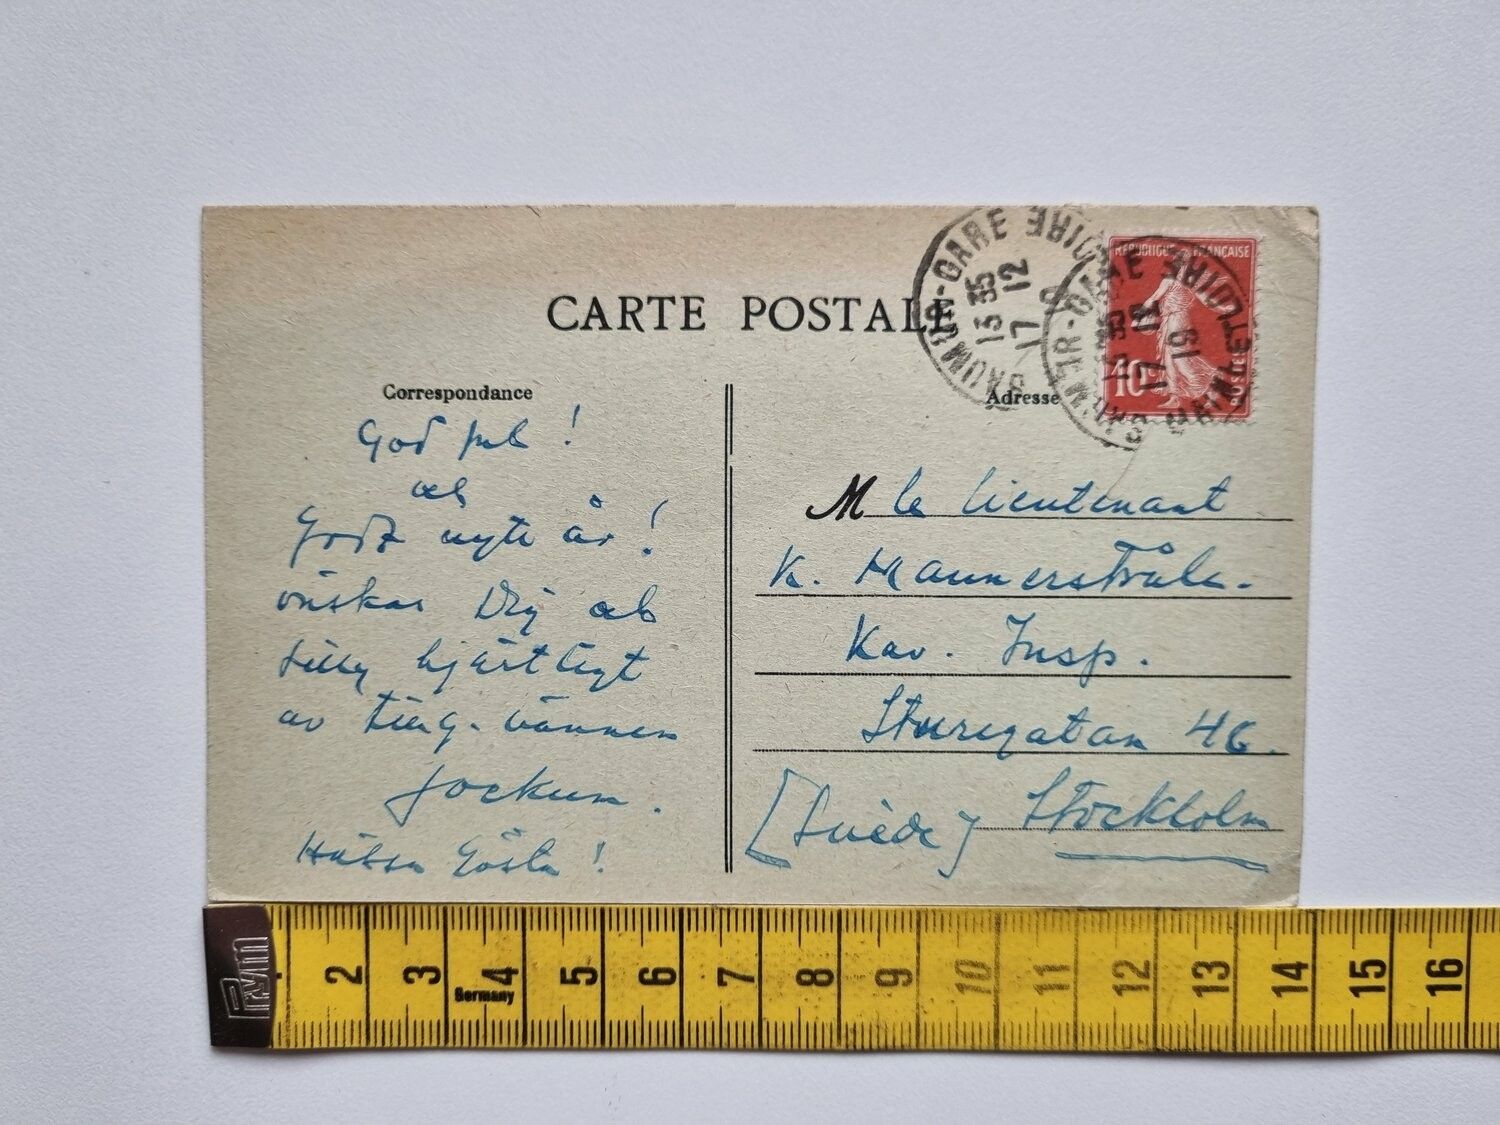 CARTE POSTALE
Correspondance
God jul!
och
Godt nytt år!
önskar Dig och
Lilly hjärtligt
av vännen
Jockum.
Hälsa Gösta!
SAUMUR-GARE
MAINE ET LOIRE
13 35
17 12
SAUMUR-GARE
MAINE ET LOIRE
13 35
17 12
19
RÉPUBLIQUE FRANÇAISE
10c
POSTES
Adresse
M le lieutenant
K. Mannerstråle.
Kav. Insp.
Sturegatan 46.
Stockholm
[Suède]
Pym
Germany
2 3 4 5 6 7 8 9 10 11 12 13 14 15 16